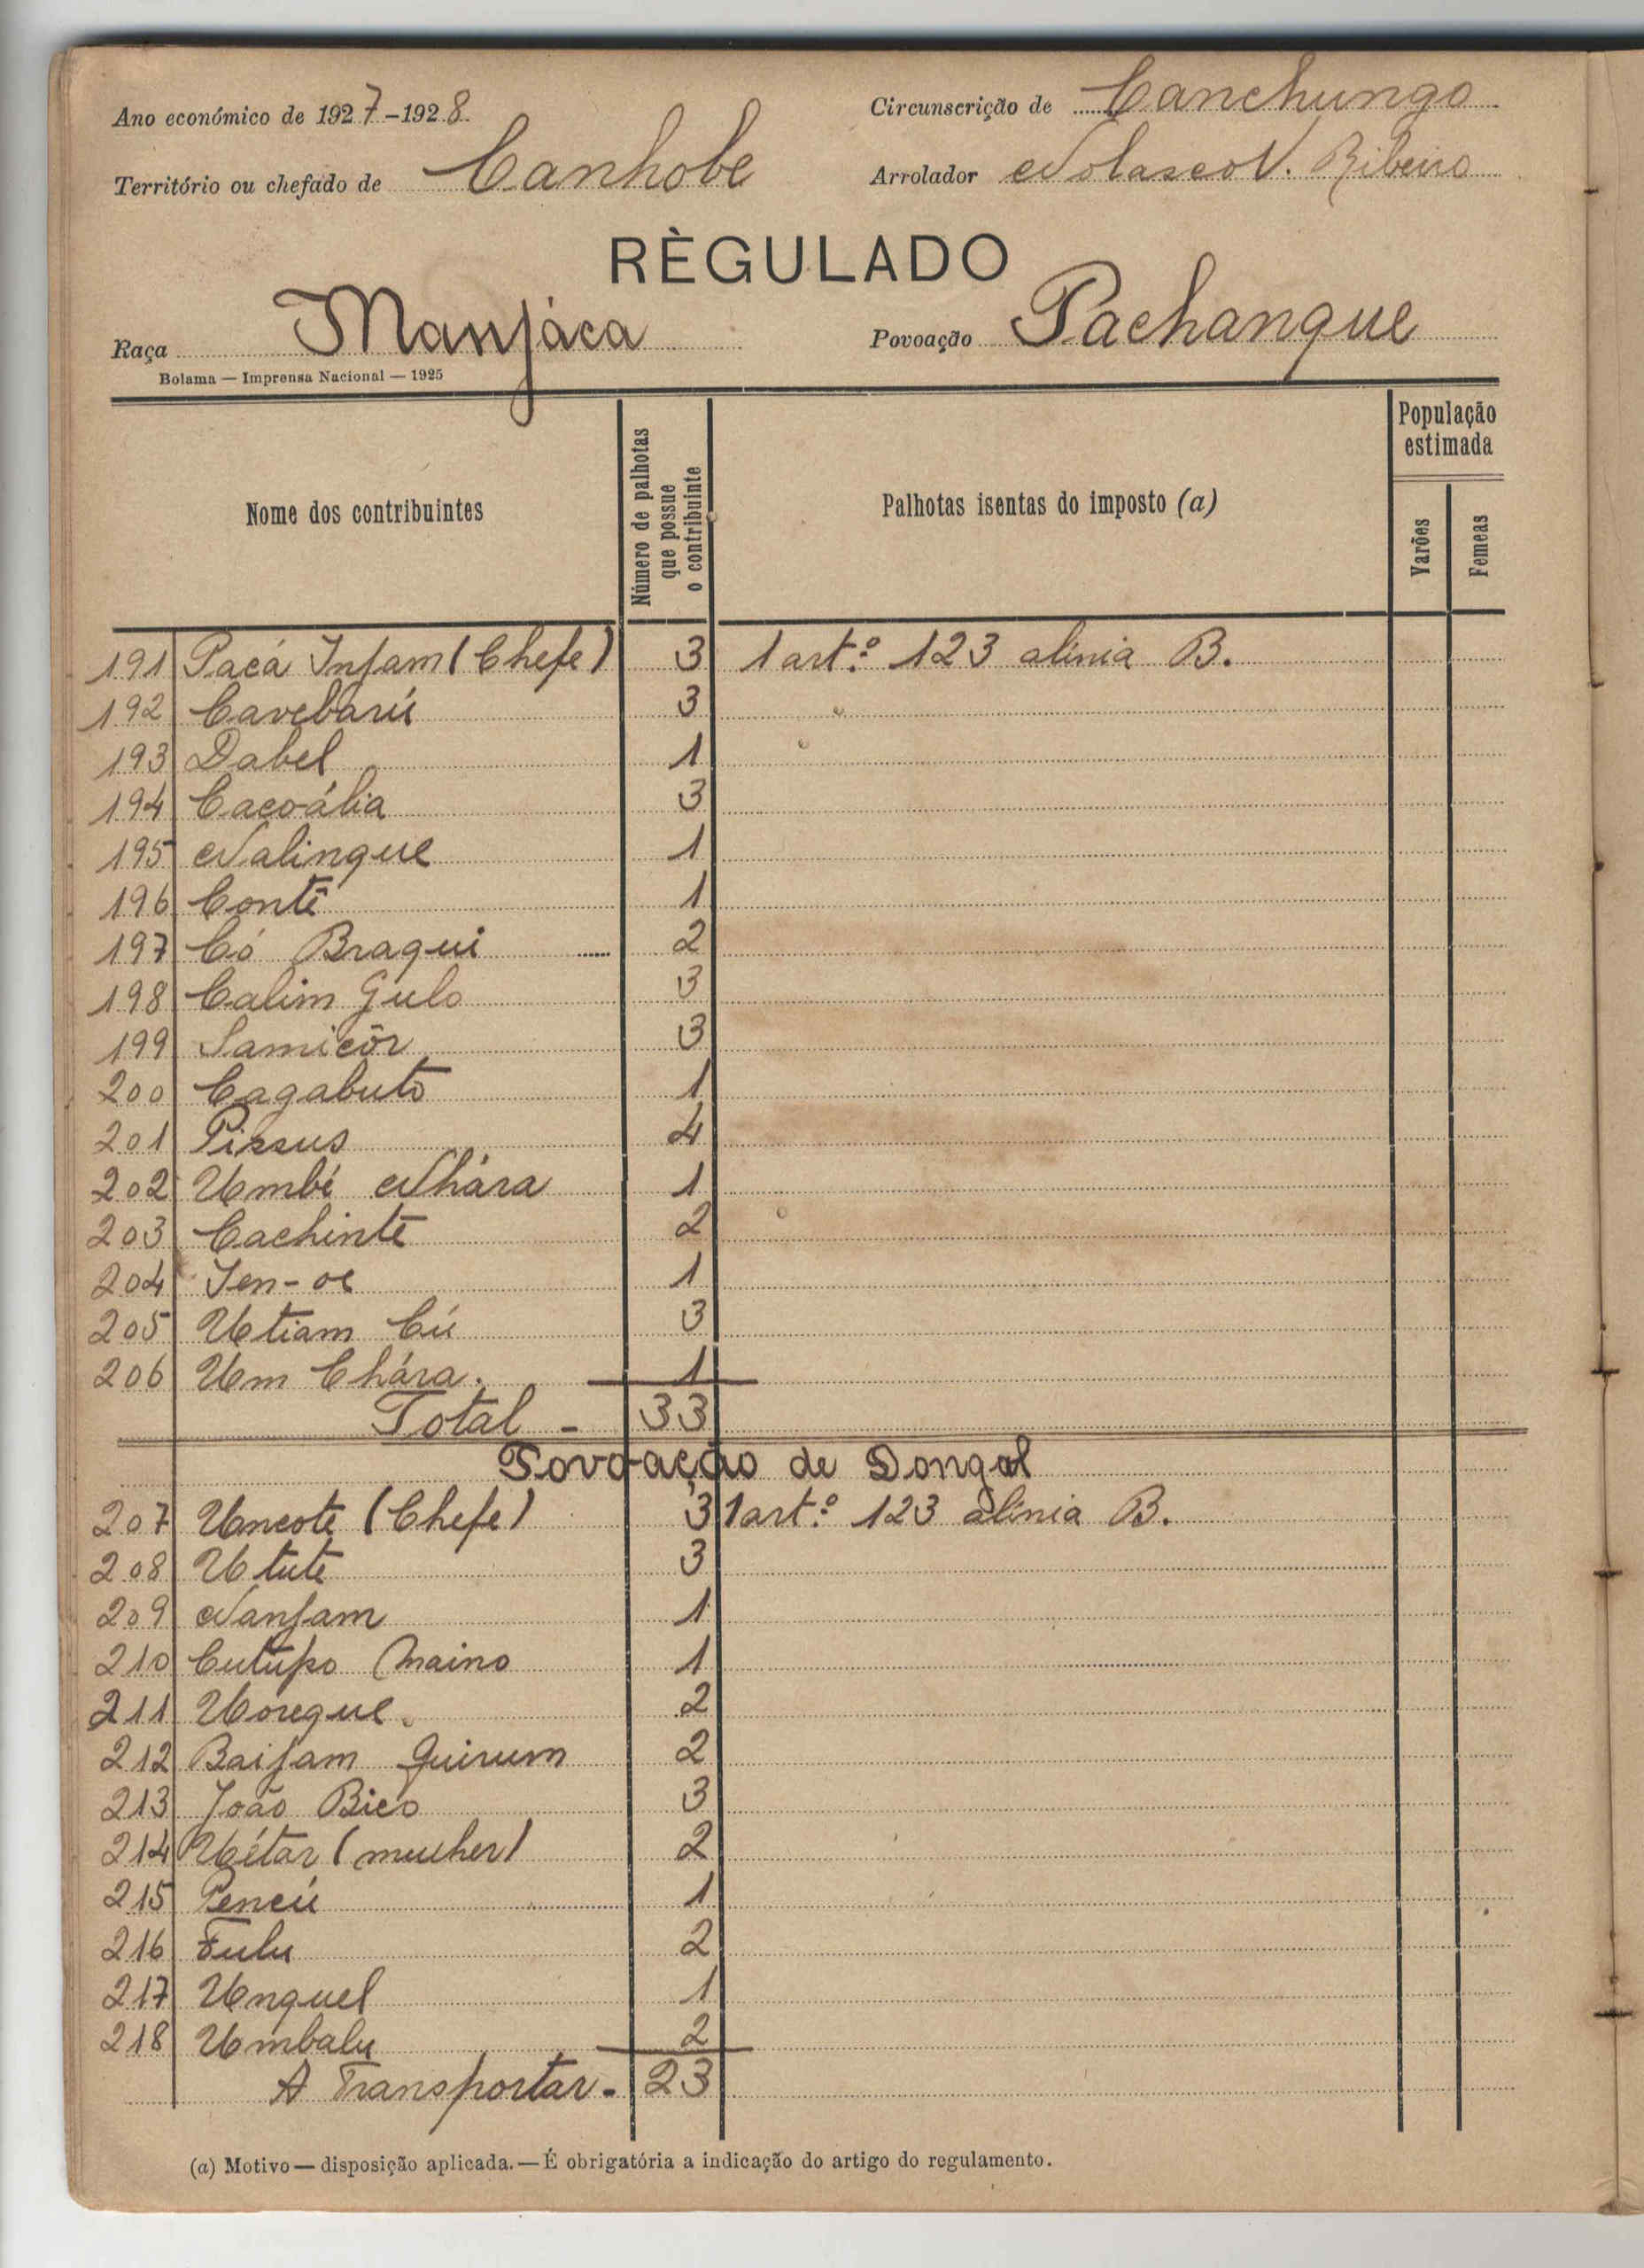 Ano económico de 1927-1928 Circunscrição de Canchungo
Território ou chefado de Canhobe Arrolador Nolasco V. Ribeiro
RÈGULADO
Raça Manjáca Povoação Pachangue
Bolama — Imprensa Nacional — 1925
Nome dos contribuintes
Número de palhotas que possue o contribuinte
Palhotas isentas do imposto (a)
População estimada
Varões
Femeas
191 Pacá Injam (Chefe) 3 1 art.º 123 alinia B.
192 Cavebarú 3
193 Dabel 1
194 Cacoália 3
195 Nalingue 1
196 Contê 1
197 Có Braqui 2
198 Calim Gulo 3
199 Samicôr 3
200 Cagabuto 1
201 Pissus 4
202 Umbé Nhára 1
203 Cachinte 2
204 Jen-oe 1
205 Utiam Cú 3
206 Um Chára. 1
Total - 33
Povoação de Dongol
207 Uncote (Chefe) 3 1 art.º 123 alinia B.
208 Utute 3
209 Nanjam 1
210 Cutupo Maino 1
211 Uoregue. 2
212 Baijam Quirum 2
213 João Bico 3
214 Uétar (mulher) 2
215 Pencú 1
216 Fulu 2
217 Unquel 1
218 Umbalu 2
A Transportar - 23
(a) Motivo — disposição aplicada. — É obrigatória a indicação do artigo do regulamento.